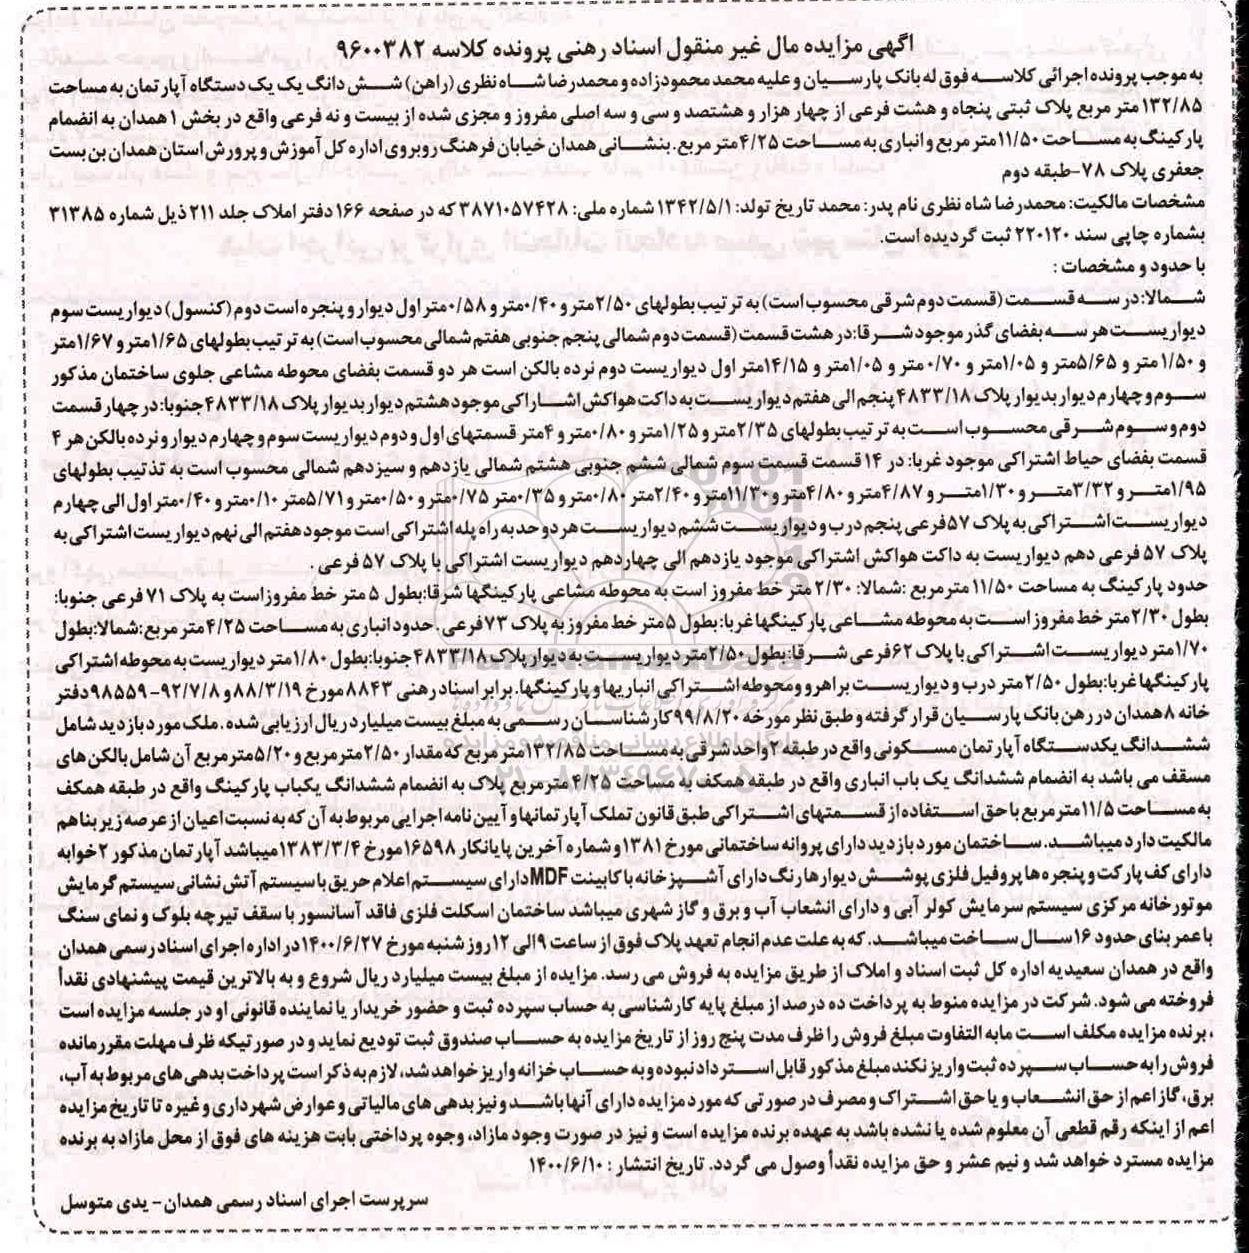 آگهی مزایده مال غیر منقول اسناد رهنی پرونده کلاسه ۹۶۰۰۳۸۲
به موجب پرونده اجرائی کلاسه فوق له بانک پارسیان و علیه محمد محمودزاده و محمدرضا شاه نظری (راهن) شش دانگ یک یک دستگاه آپارتمان به مساحت
۱۳۲/۸۵ متر مربع پلاک ثبتی پنجاه و هشت فرعی از چهار هزار و هشتصد و سی و سه اصلی مفروز و مجزی شده از بیست و نه فرعی واقع در بخش ۱ همدان به انضمام
پارکینگ به مساحت ۱۱/۵۰ متر مربع و انباری به مساحت ۴/۲۵ متر مربع. بنشانی همدان خیابان فرهنگ روبروی اداره کل آموزش و پرورش استان همدان بن بست
جعفری پلاک ۷۸-طبقه دوم
مشخصات مالکیت: محمدرضا شاه نظری نام پدر: محمد تاریخ تولد: ۱۳۴۲/۵/۱ شماره ملی: ۳۸۷۱۰۵۷۴۲۸ که در صفحه ۱۶۶ دفتر املاک جلد ۲۱۱ ذیل شماره ۳۱۳۸۵
بشماره چاپی سند ۲۲۰۱۲۰ ثبت گردیده است.
با حدود و مشخصات :
شمالا: در سه قسمت (قسمت دوم شرقی محسوب است) به ترتیب بطولهای ۲/۵۰ متر و ۰/۴۰ متر و ۰/۵۸ متر اول دیوار و پنجره است دوم (کنسول) دیواریست سوم
دیواریست هر سه بفضای گذر موجود شرقا: در هشت قسمت (قسمت دوم شمالی پنجم جنوبی هفتم شمالی محسوب است) به ترتیب بطولهای ۱/۶۵ متر و ۱/۶۷ متر
و ۱/۵۰ متر و ۵/۶۵ متر و ۱/۰۵ متر و ۰/۷۰ متر و ۱/۰۵ متر و ۱۴/۱۵ متر اول دیواریست دوم نرده بالکن است هر دو قسمت بفضای محوطه مشاعی جلوی ساختمان مذکور
سوم و چهارم دیوار بدیوار پلاک ۴۸۳۳/۱۸ پنجم الی هفتم دیواریست به داکت هواکش اشتراکی موجود هشتم دیوار بدیوار پلاک ۴۸۳۳/۱۸ جنوبا: در چهار قسمت
دوم و سوم شرقی محسوب است به ترتیب بطولهای ۲/۳۵ متر و ۱/۲۵ متر و ۰/۸۰ متر و ۴ متر قسمتهای اول و دوم دیواریست سوم و چهارم دیوار و نرده بالکن هر ۴
قسمت بفضای حیاط اشتراکی موجود غربا: در ۱۴ قسمت قسمت سوم شمالی ششم جنوبی هشتم شمالی یازدهم و سیزدهم شمالی محسوب است به تذتیب بطولهای
۱/۹۵ متر و ۳/۳۲ متر و ۱/۳۰ متر و ۴/۸۷ متر و ۴/۸۰ متر و ۱۱/۳۰ متر و ۲/۴۰ متر و ۰/۸۰ متر و ۰/۳۵ متر و ۰/۷۵ متر و ۰/۵۰ متر و ۵/۷۱ متر و ۰/۱۰ متر و ۰/۴۰ متر اول الی چهارم
دیواریست اشتراکی به پلاک ۵۷ فرعی پنجم درب و دیواریست ششم دیواریست هر دو حد به راه پله اشتراکی است موجود هفتم الی نهم دیواریست اشتراکی به
پلاک ۵۷ فرعی دهم دیواریست به داکت هواکش اشتراکی موجود یازدهم الی چهاردهم دیواریست اشتراکی با پلاک ۵۷ فرعی .
حدود پارکینگ به مساحت ۱۱/۵۰ مترمربع :شمالا: ۲/۳۰ متر خط مفروز است به محوطه مشاعی پارکینگها شرقا: بطول ۵ متر خط مفروز است به پلاک ۷۱ فرعی جنوبا:
بطول ۲/۳۰ متر خط مفروز است به محوطه مشاعی پارکینگها غربا: بطول ۵ متر خط مفروز به پلاک ۷۳ فرعی. حدود انباری به مساحت ۴/۲۵ متر مربع: شمالا: بطول
۱/۷۰ متر دیواریست اشتراکی با پلاک ۶۲ فرعی شرقا: بطول ۲/۵۰ متر دیواریست به دیوار پلاک ۴۸۳۳/۱۸ جنوبا: بطول ۱/۸۰ متر دیواریست به محوطه اشتراکی
پارکینگها غربا: بطول ۲/۵۰ متر درب و دیواریست براهرو ومحوطه اشتراکی انباریها و پارکینگها. برابر اسناد رهنی ۸۸۴۳ مورخ ۸۸/۳/۱۹ و ۹۲/۷/۸-۹۸۵۵۹ دفتر
خانه ۸ همدان در رهن بانک پارسیان قرار گرفته و طبق نظر مورخه ۹۹/۸/۲۰ کارشناسان رسمی به مبلغ بیست میلیارد ریال ارزیابی شده. ملک مورد بازدید شامل
ششدانگ یکدستگاه آپارتمان مسکونی واقع در طبقه ۲ واحد شرقی به مساحت ۱۳۲/۸۵ متر مربع که مقدار ۲/۵۰ متر مربع و ۵/۲۰ متر مربع آن شامل بالکن های
مسقف می باشد به انضمام ششدانگ یک باب انباری واقع در طبقه همکف به مساحت ۴/۲۵ مترمربع پلاک به انضمام ششدانگ یکباب پارکینگ واقع در طبقه همکف
به مساحت ۱۱/۵ مترمربع با حق استفاده از قسمتهای اشتراکی طبق قانون تملک آپارتمانها و آیین نامه اجرایی مربوط به آن که به نسبت اعیان از عرصه زیر بنا هم
مالکیت دارد میباشد. ساختمان مورد بازدید دارای پروانه ساختمانی مورخ ۱۳۸۱ و شماره آخرین پایانکار ۱۶۵۹۸ مورخ ۱۳۸۳/۳/۴ میباشد آپارتمان مذکور ۲ خوابه
دارای کف پارکت و پنجره ها پروفیل فلزی پوشش دیوارها رنگ دارای آشپزخانه با کابینت MDF دارای سیستم اعلام حریق با سیستم آتش نشانی سیستم گرمایش
موتورخانه مرکزی سیستم سرمایش کولر آبی و دارای انشعاب آب و برق و گاز شهری میباشد ساختمان اسکلت فلزی فاقد آسانسور با سقف تیرچه بلوک و نمای سنگ
با عمر بنای حدود ۱۶ سال ساخت میباشد. که به علت عدم انجام تعهد پلاک فوق از ساعت ۹ الی ۱۲ روز شنبه مورخ ۱۴۰۰/۶/۲۷ در اداره اجرای اسناد رسمی همدان
واقع در همدان سعیدیه اداره کل ثبت اسناد و املاک از طریق مزایده به فروش می رسد. مزایده از مبلغ بیست میلیارد ریال شروع و به بالاترین قیمت پیشنهادی نقداً
فروخته می شود. شرکت در مزایده منوط به پرداخت ده درصد از مبلغ پایه کارشناسی به حساب سپرده ثبت و حضور خریدار یا نماینده قانونی او در جلسه مزایده است
، برنده مزایده مکلف است مابه التفاوت مبلغ فروش را ظرف مدت پنج روز از تاریخ مزایده به حساب صندوق ثبت تودیع نماید و در صورتیکه ظرف مهلت مقرر مانده
فروش را به حساب سپرده ثبت واریز نکند مبلغ مذکور قابل استرداد نبوده و به حساب خزانه واریز خواهد شد، لازم به ذکر است پرداخت بدهی های مربوط به آب،
برق، گاز اعم از حق انشعاب و یا حق اشتراک و مصرف در صورتی که مورد مزایده دارای آنها باشد و نیز بدهی های مالیاتی و عوارض شهرداری و غیره تا تاریخ مزایده
اعم از اینکه رقم قطعی آن معلوم شده یا نشده باشد به عهده برنده مزایده است و نیز در صورت وجود مازاد، وجوه پرداختی بابت هزینه های فوق از محل مازاد به برنده
مزایده مسترد خواهد شد و نیم عشر و حق مزایده نقداً وصول می گردد. تاریخ انتشار : ۱۴۰۰/۶/۱۰
سرپرست اجرای اسناد رسمی همدان - یدی متوسل